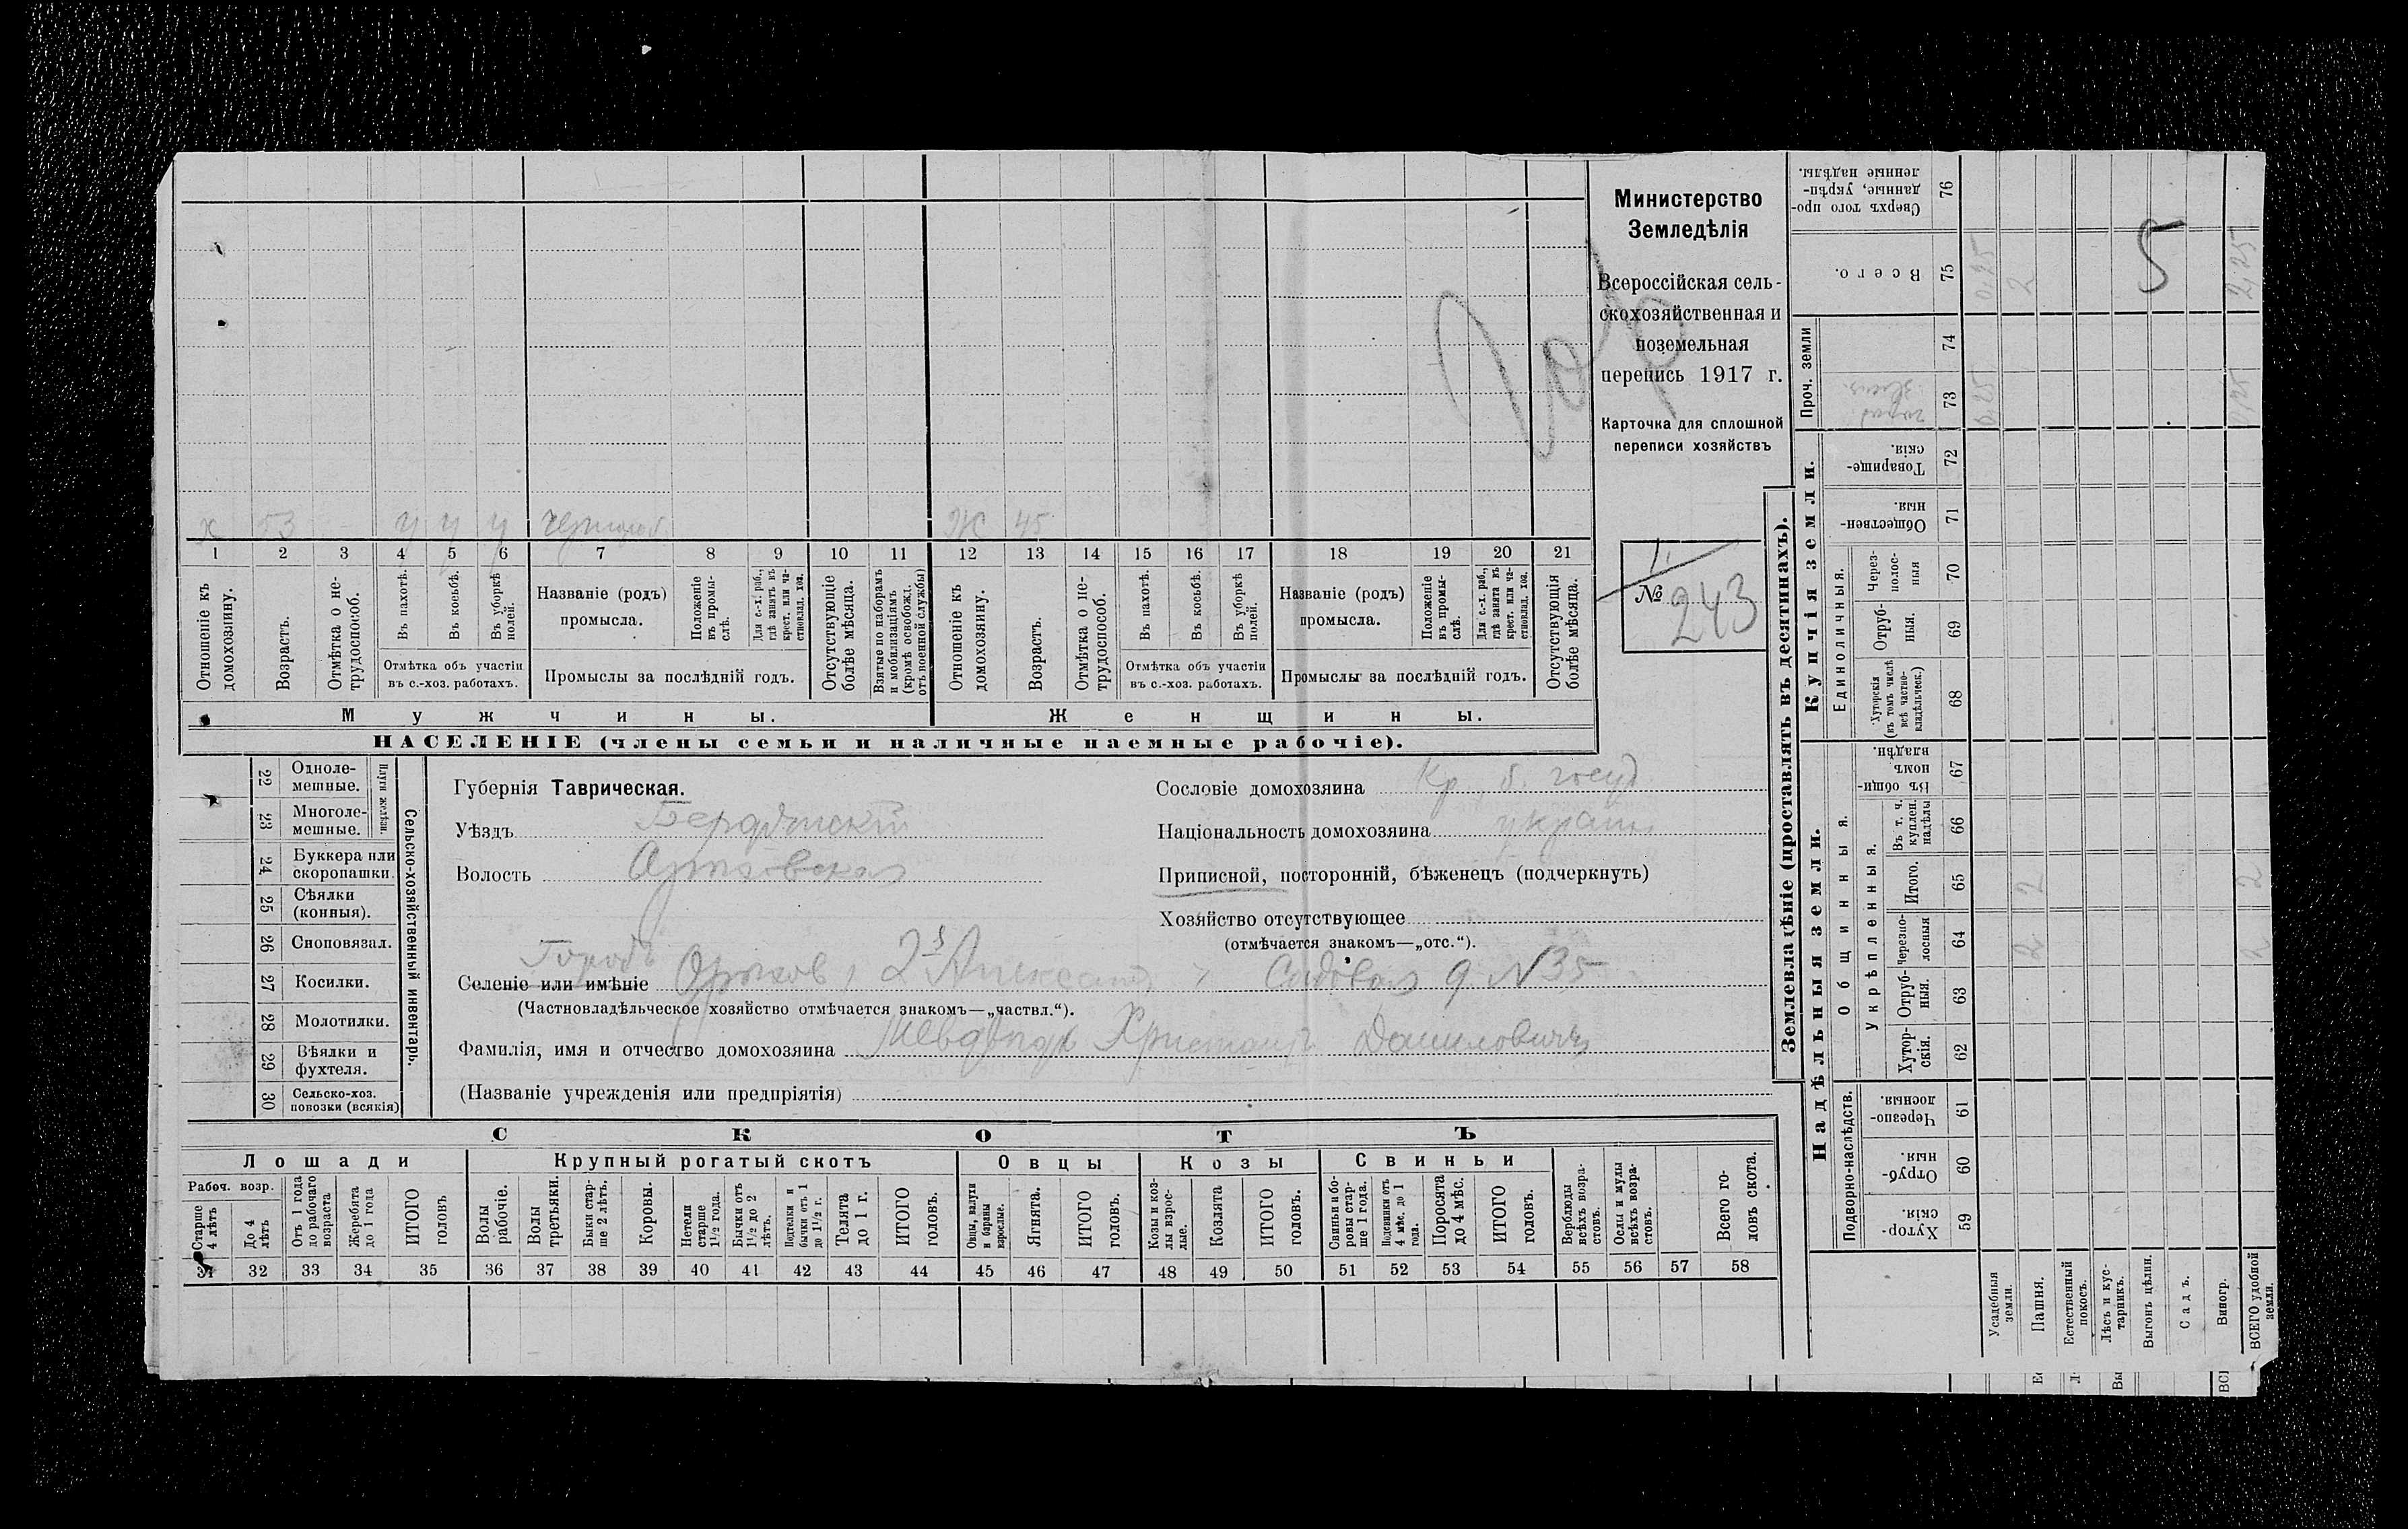 Министерство
Земледѣлія
Всероссійская сель-
скохозяйственная и
поземельная
перепись 1917 г.
Карточка для сплошной
переписи хозяйствъ
№ 243
х 53 у у у Ж 45
1 2 3 4 5 6 7 8 9 10 11 12 13 14 15 16 17 18 19 20 21
Отношеніе къ домохозяину.
Возрастъ.
Отмѣтка о не-трудоспособ.
Въ пахотѣ.
Въ косьбѣ.
Въ уборкѣ полей.
Отмѣтка объ участіи
въ с.-хоз. работахъ.
Названіе (родъ)
промысла.
Положеніе въ промы-слѣ.
Для с.-х. раб., гдѣ занятъ въ крест. или ча-ствовлад. хоз.
Промыслы за послѣдній годъ.
Отсутствующіе болѣе мѣсяца.
Взятые по наборамъ и мобилизаціямъ (кромѣ освобожд. отъ военной службы)
Отношеніе къ домохозяину.
Возрастъ.
Отмѣтка о не-трудоспособ.
Въ пахотѣ.
Въ косьбѣ.
Въ уборкѣ полей.
Отмѣтка объ участіи
въ с.-хоз. работахъ.
Названіе (родъ)
промысла.
Положеніе въ промы-слѣ.
Для с.-х. раб., гдѣ занята въ крест. или ча-ствовлад. хоз.
Промыслы за послѣдній годъ.
Отсутствующія болѣе мѣсяца.
Мужчины. Женщины.
НАСЕЛЕНІЕ (члены семьи и наличные наемные рабочіе).
Сельско-хозяйственный инвентарь.
Плуги желѣзн.
22 Одноле-мешные.
23 Многоле-мешные.
24 Буккера или скоропашки.
25 Сѣялки (конныя).
26 Сноповязал.
27 Косилки.
28 Молотилки.
29 Вѣялки и фухтеля.
30 Сельско-хоз. повозки (всякія)
Губернія Таврическая.
Уѣздъ Бердянскій
Волость
Городъ
Селеніе или имѣніе Орѣхов, 2я Садовая д. N 35
(Частновладѣльческое хозяйство отмѣчается знакомъ—„частвл.“).
Фамилія, имя и отчество домохозяина Даниловичъ
(Названіе учрежденія или предпріятія)
Сословіе домохозяина Кр. б. госуд
Національность домохозяина украин
Приписной, посторонній, бѣженецъ (подчеркнуть)
Хозяйство отсутствующее
(отмѣчается знакомъ—„отс.“).
СКОТЪ
Лошади Крупный рогатый скотъ Овцы Козы Свиньи
Рабоч. возр.
Старше 4 лѣтъ
До 4 лѣтъ
Отъ 1 года до рабочаго возраста
Жеребята до 1 года
ИТОГО головъ
Волы рабочіе.
Волы третьяки.
Быки стар-ше 2 лѣтъ.
Коровы.
Нетели старше 1½ года.
Бычки отъ 1½ до 2 лѣтъ.
Подтелки и бычки отъ 1 до 1½ г.
Телята до 1 г.
ИТОГО головъ.
Овцы, валухи и бараны взрослые.
Ягнята.
ИТОГО головъ.
Козы и коз-лы взрос-лые.
Козлята
ИТОГО головъ.
Свиньи и бо-ровы стар-ше 1 года.
Подсвинки отъ 4 мѣс. до 1 года.
Поросята до 4 мѣс.
ИТОГО головъ.
Верблюды всѣхъ возра-стовъ.
Ослы и мулы всѣхъ возра-стовъ.
Всего го-ловъ скота.
31 32 33 34 35 36 37 38 39 40 41 42 43 44 45 46 47 48 49 50 51 52 53 54 55 56 57 58
Землевладѣніе (проставлять въ десятинахъ).
Надѣльныя земли.
Купчія земли.
Проч. земли
Подворно-наслѣдств.
Общинныя.
Укрѣпленныя.
Единоличныя.
Хутор-скія. 59
Отруб-ныя. 60
Черезпо-лосныя. 61
Хутор-скія. 62
Отруб-ныя. 63
Черезпо-лосныя 64 2 2
Итого. 65 2 2
Въ т. ч. куплен. надѣлы 66
Въ общи-номъ владѣн. 67
Хуторскія (въ томъ числѣ всѣ частно-владѣльческ.) 68
Отруб-ныя. 69
Через-полос-ныя 70
Обществен-ныя 71
Товарище-скія. 72
73 0,25 0,25
74
Всего. 75 0,25 2 2,25
Сверхъ того про-данные, укрѣп-ленные надѣлы. 76
5
Усадебныя земли.
Пашня.
Естественный покосъ.
Лѣсъ и кус-тарникъ.
Выгонъ цѣлин.
Садъ.
Виногр.
ВСЕГО удобной земли.